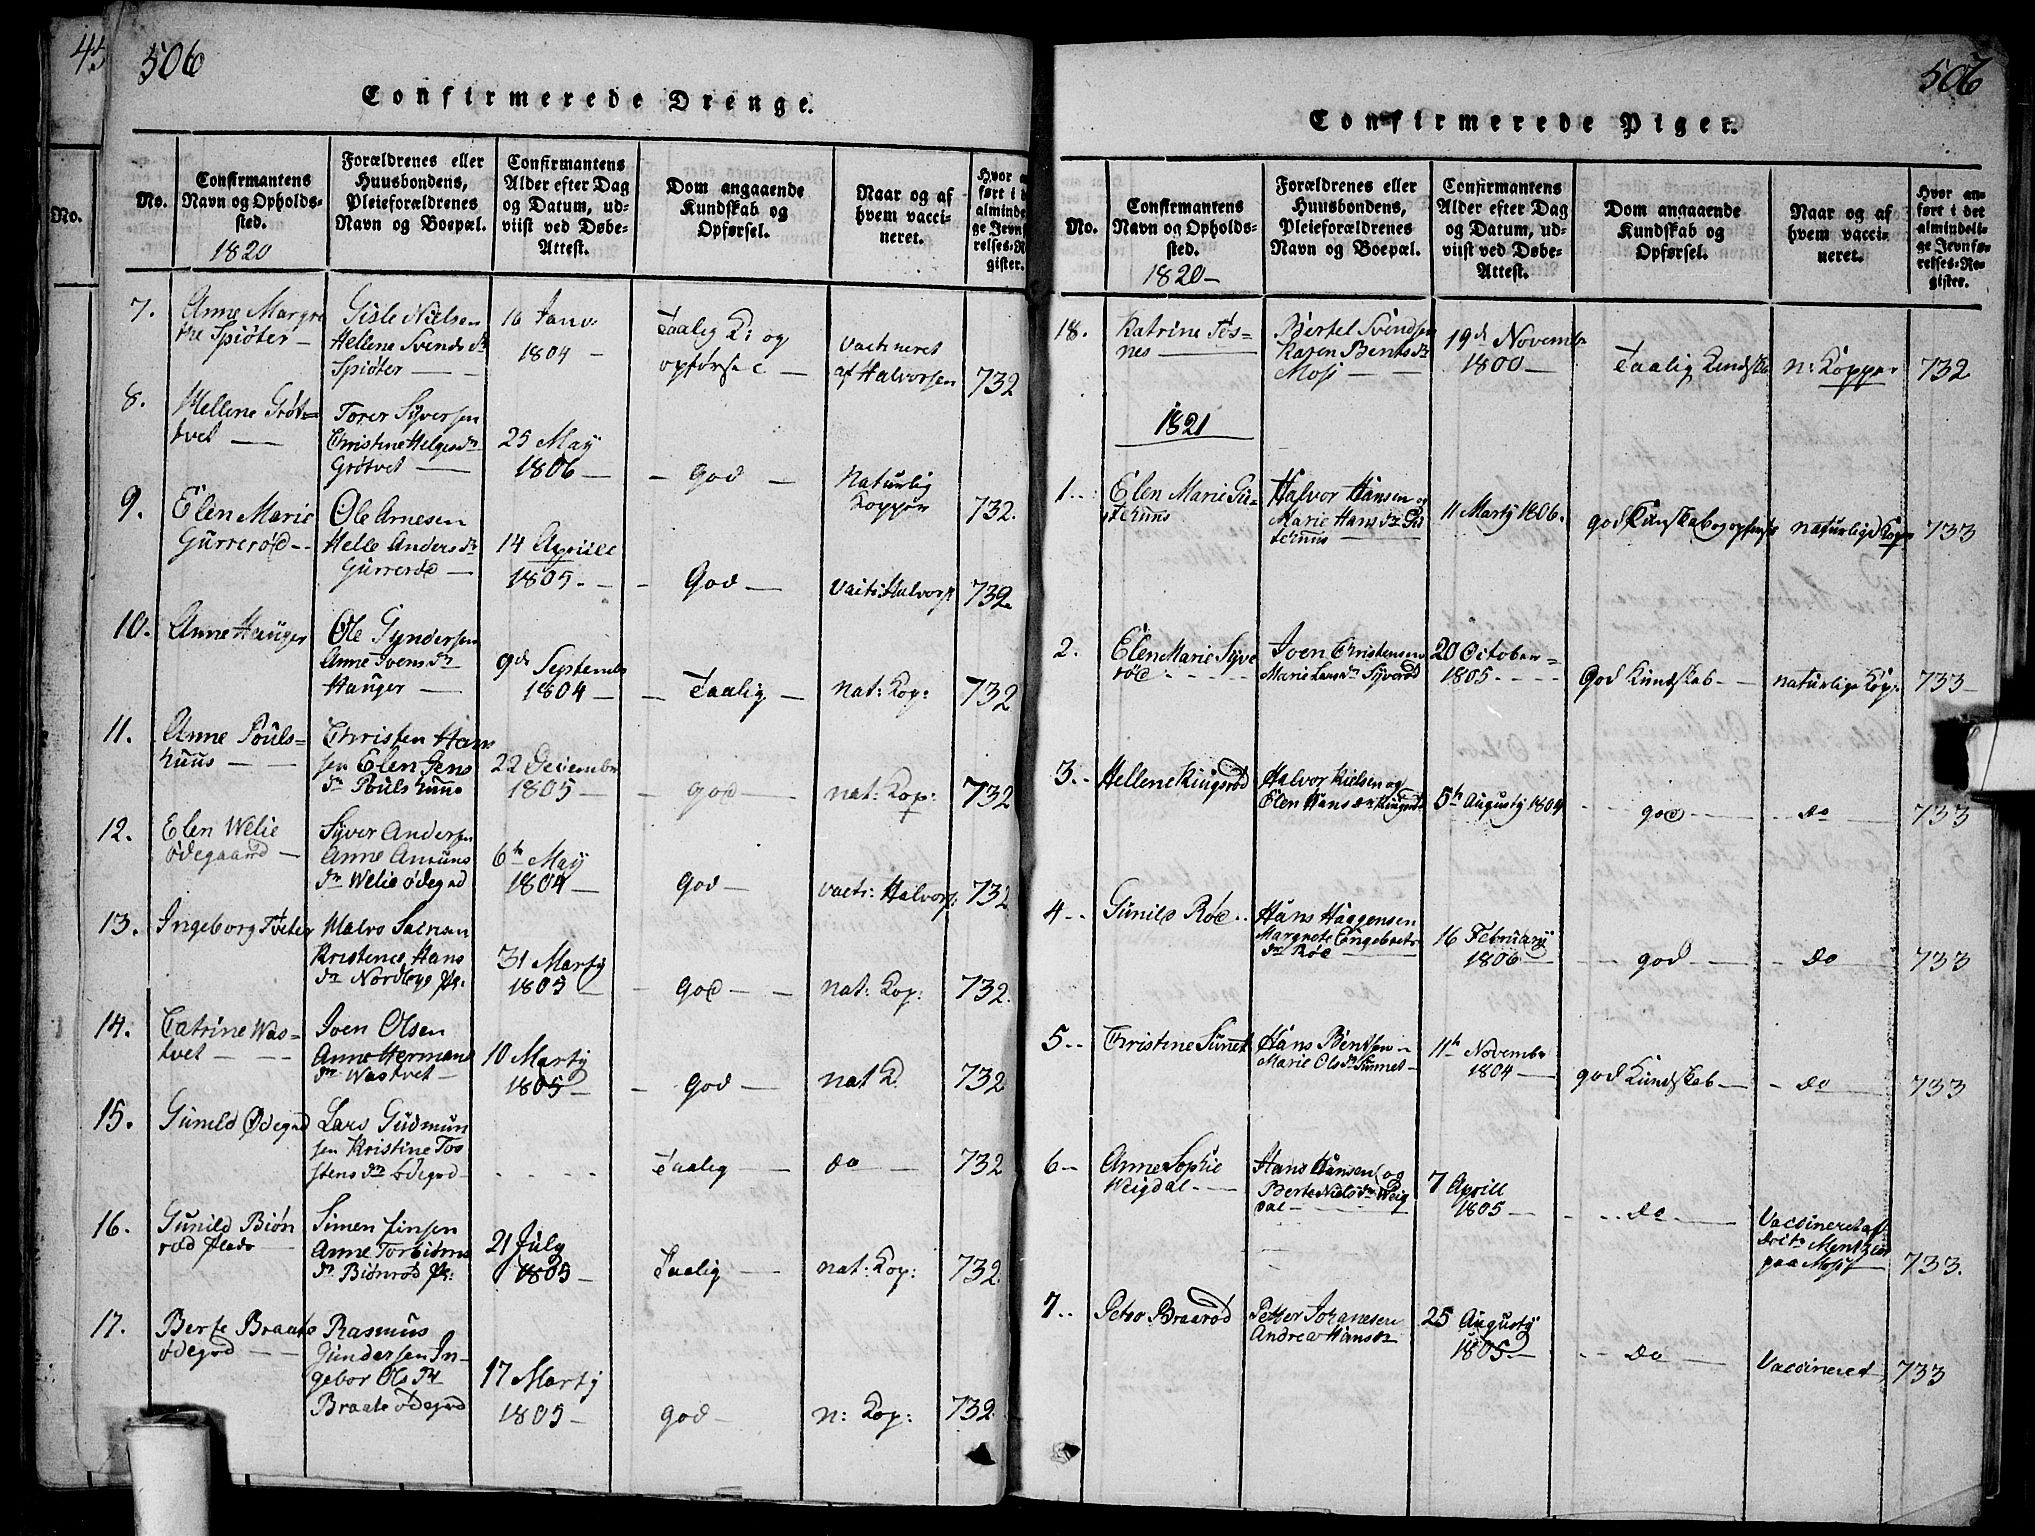 45
No.
506
Confirmerede Drenge.
No.
Confirmantens
Navn og Opholds-
sted.
1820
Forældrenes eller
Huusbondens,
Pleieforældrenes
Navn og Boepæl.
Confirmantens
Alder efter Dag
og Datum, ud-
viist ved Døbe-
Attest.
Dom angaaende
Kundskab og
Opførsel.
Naar og af
hvem vacci-
neret.
Hvor
ført i
alminde
ge Jevnf
relses-R
gister.
7.
Anne Margre
the Spiøter
Gisle Nielsen
Hellene Svends dr
Spiøter
16 Janv
1804
Taalig K: og
opførsel
vactineret
af Halvorsen
732
8.
Hellene Grøt=
tvet
Torer Syversen
Christine Helges dr
Grøtvet
25 May
1806
God
Naturlig
Kopper
732.
9.
Elen Marie
Gurrerød
Ole Arnesen
Helle Anders dr
Gurrerød
14 Aprill
1805.
God
vacts: Halvors
732.
10.
Anne Hauger
Ole Gundersen
Anne Joens dr
Hauger
9de Septembr
1804
Taalig
nat: Kop:
732
11.
Anne Pouls=
huus
Christen Hans
sen Elen Jens
dr Pouls huus
22 Decembr
1805
god
nat: Kop:
732
12.
Elen Welie
ødegaard
Syver Andersen
Anne Amuns
dr Welie ødegrd
6te May
1804
God
vacts: Halvors:
732
13.
Ingeborg Tveter
Kristence Hans
dr Nordbye Pl:
31 Marty
1805
God
nat: Kop:
732.
14.
Catrine Was=
tvet
Joen Olsen
Anne Hermans
dr Wastvet
10 Marty
1805
God
nat K.
732
15.
Gunild Ødegrd
Lars Gudmun
sen Kristine Tos
stens dr ødegrd
Taalig
do
732
16.
Gunild Biøn
rød Plads
Simen Jinsen
Anne Torbiørns
dr Biønrød Pl:
21 July
1805
Taalig
nat: Kop:
732
17.
Berte Braate
ødegrd
Rasmus
Gundersen In-
gebor Ols Dr
Braate ødegrd
17 Marty
1805
God
n: Kop:
732.
506
Confirmerede Piger.
No.
Confirmantens
Navn og Opholds-
sted.
1820
Forældrenes eller
Huusbondens,
Pleieforældrenes
Navn og Boepæl.
Confirmantens
Alder efter Dag
og Datum, ud-
viist ved Døbe-
Attest.
Dom angaaende
Kundskab og
Opførsel.
Naar og af
hvem vacci-
neret.
Hvor an-
ført i det
almindeli-
ge Jevnfø-
relses-Re-
gister.
18.
Katrine Tøs-
nes
Bertel Svendsen
Karen Bents dr
Moss
19d Novembr
1800
Taalig Kundska
n: Kopper
732
1821
1.
Elen Marie Gu-
Halvor Hansen og
Marie Hans dr
11 Marty 1806.
god Kunskab og opførsel
naturlige Kopr
733
2.
Elen Marie Syve
rød
Joen Christensen
Marie Lars dr Syverød
20 October
1805
God Kundskab
naturlige Kop:
733
3.
Hellene Ringsrød
Halvor Nielsen og
Elen Hans dr Ringsrød
5te Augusty 1804
god
do
733
4
Gunild Røe
Hans Haggensen
Margrete Engebrets
dr Røe
16 February
1806
god
do
733
5
Christine Sunnet
Hans Bentsen
Marie Ols dr Sunnet
11te Novembr
1804
god Kundskab
do
733
6
Anne Sophie
Weigdal
Hans Hansen og
Berte Niels dr Weig
dal
7 Aprill
1805
do
Vaccineret af
Doctr Mentzer
paa Moss
733.
7
Petro Braarød
Petter Johanesen
Andrea Hans dr
25 Augusty
1805
do
Vaccineret
733